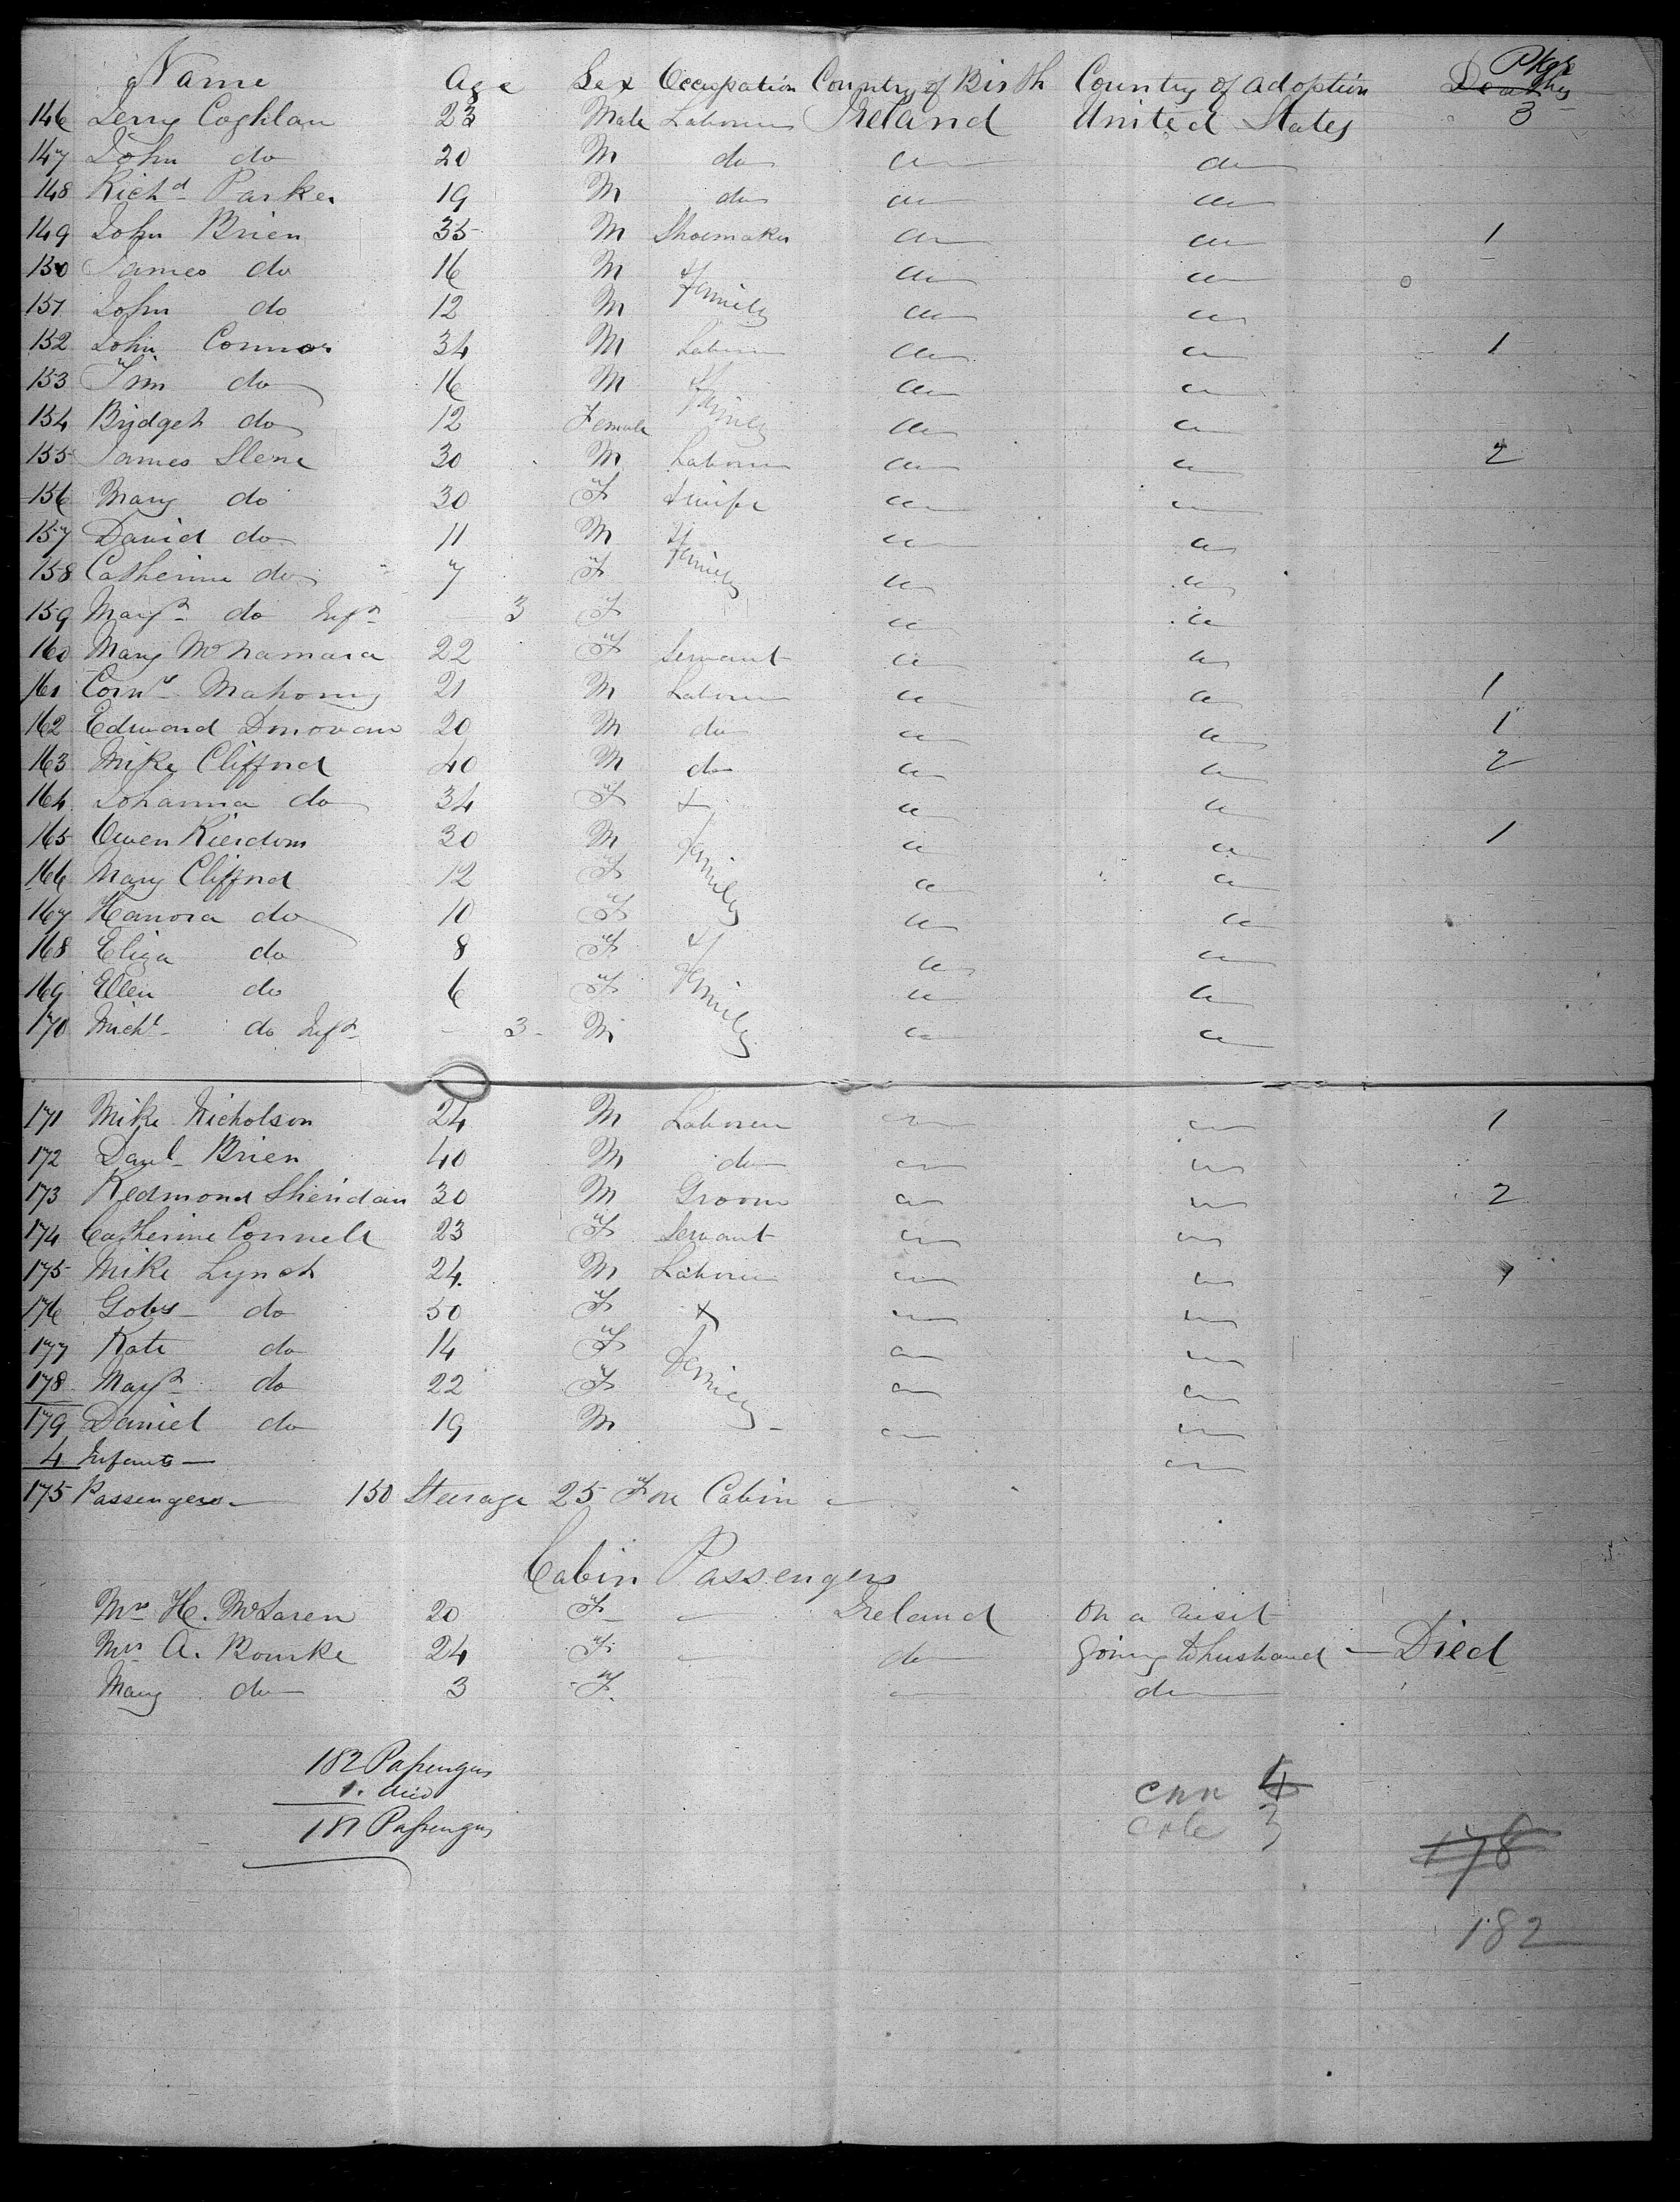 Name Age Sex Occupation Country of Birth Country of adoption Deaths Pkgs
146 Jerry Coghlan 23 Male Laborer Ireland United States 3
147 John do 20 M do do do
148 Richd Parker 19 M do do do
149 John Brien 35 M Shoemaker do do 1
150 James do 16 M & do do
151 John do 12 M family do do
152 John Connor 34 M Laborer do do 1
153 Tim do 16 M & do do
154 Bridget do 12 Female family do do
155 James Slene 30 M Laborer do do 2
156 Mary do 30 F & wife do do
157 David do 11 M & do do
158 Catherine do 7 F family do do
159 Margt do Inft 3 F do do
160 Mary McNamara 22 F Servant do do
161 Corns Mahony 21 M Laborer do do 1
162 Edward Donovan 20 M do do do 1
163 Mike Clifford 40 M do do do 2
164 Johanna do 34 F & do do
165 Owen Rierdom 30 M family do do 1
166 Mary Clifford 12 F do do
167 Hanora do 10 F do do
168 Eliza do 8 F & do do
169 Ellen do 6 F family do do
170 Michl do Inft 3 M do do
171 Mike Nicholson 24 M Laborer do do 1
172 Danl Brien 40 M do do do
173 Redmond Sheridan 30 M Groom do do 2
174 Catherine Connell 23 F Servant do do
175 Mike Lynch 24 M Laborer do do 1
176 do 50 F & do do
177 Kate do 14 F family do do
178 Margt do 22 F do do
179 Daniel do 19 M do do
4 Infants do
175 Passengers 150 Steerage 25 Fore Cabin
Cabin Passengers
Mrs H. McLaren 20 F Ireland on a visit
Mrs A. Rourke 24 F do going to husband Died
Mary do 3 F do
182 Passengers
1 died
181 Passengers
4
3
178
182